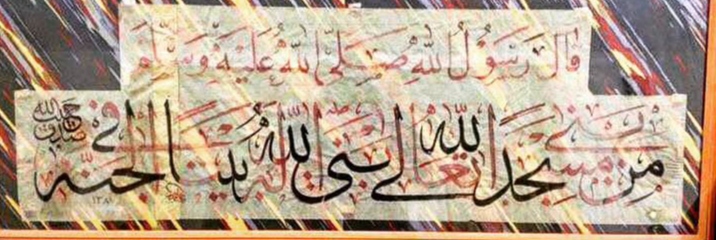 قال رسول الله صلى الله عليه وسلم
من بنى مسجدا لله تعالى بنى الله له بيتا في الجنة